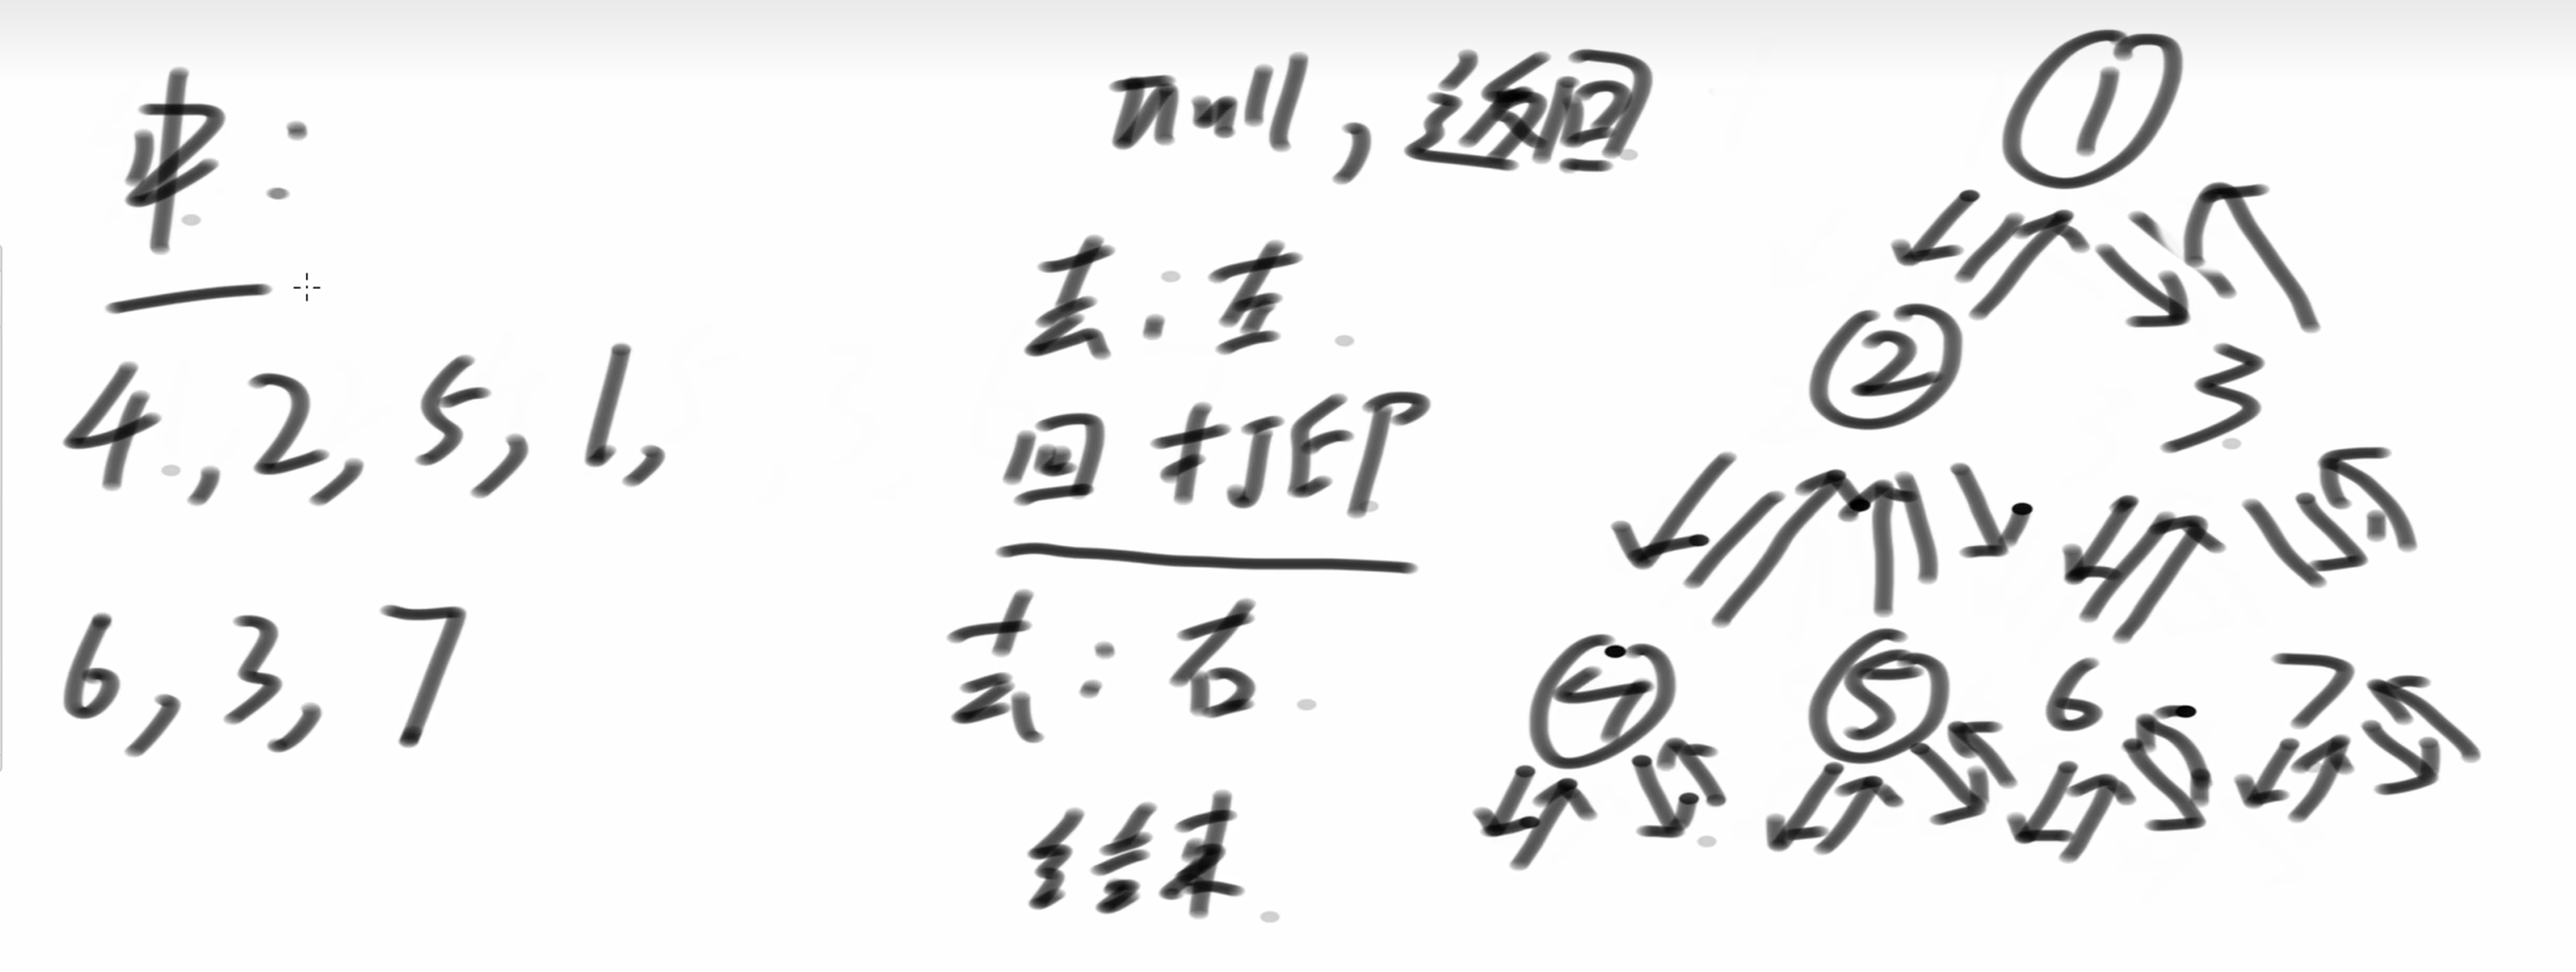 中:
4,2,5,1,
6,3,7
null,返回
去:左
回 打印
去:右
结束
1
2 3
4 5 6 7